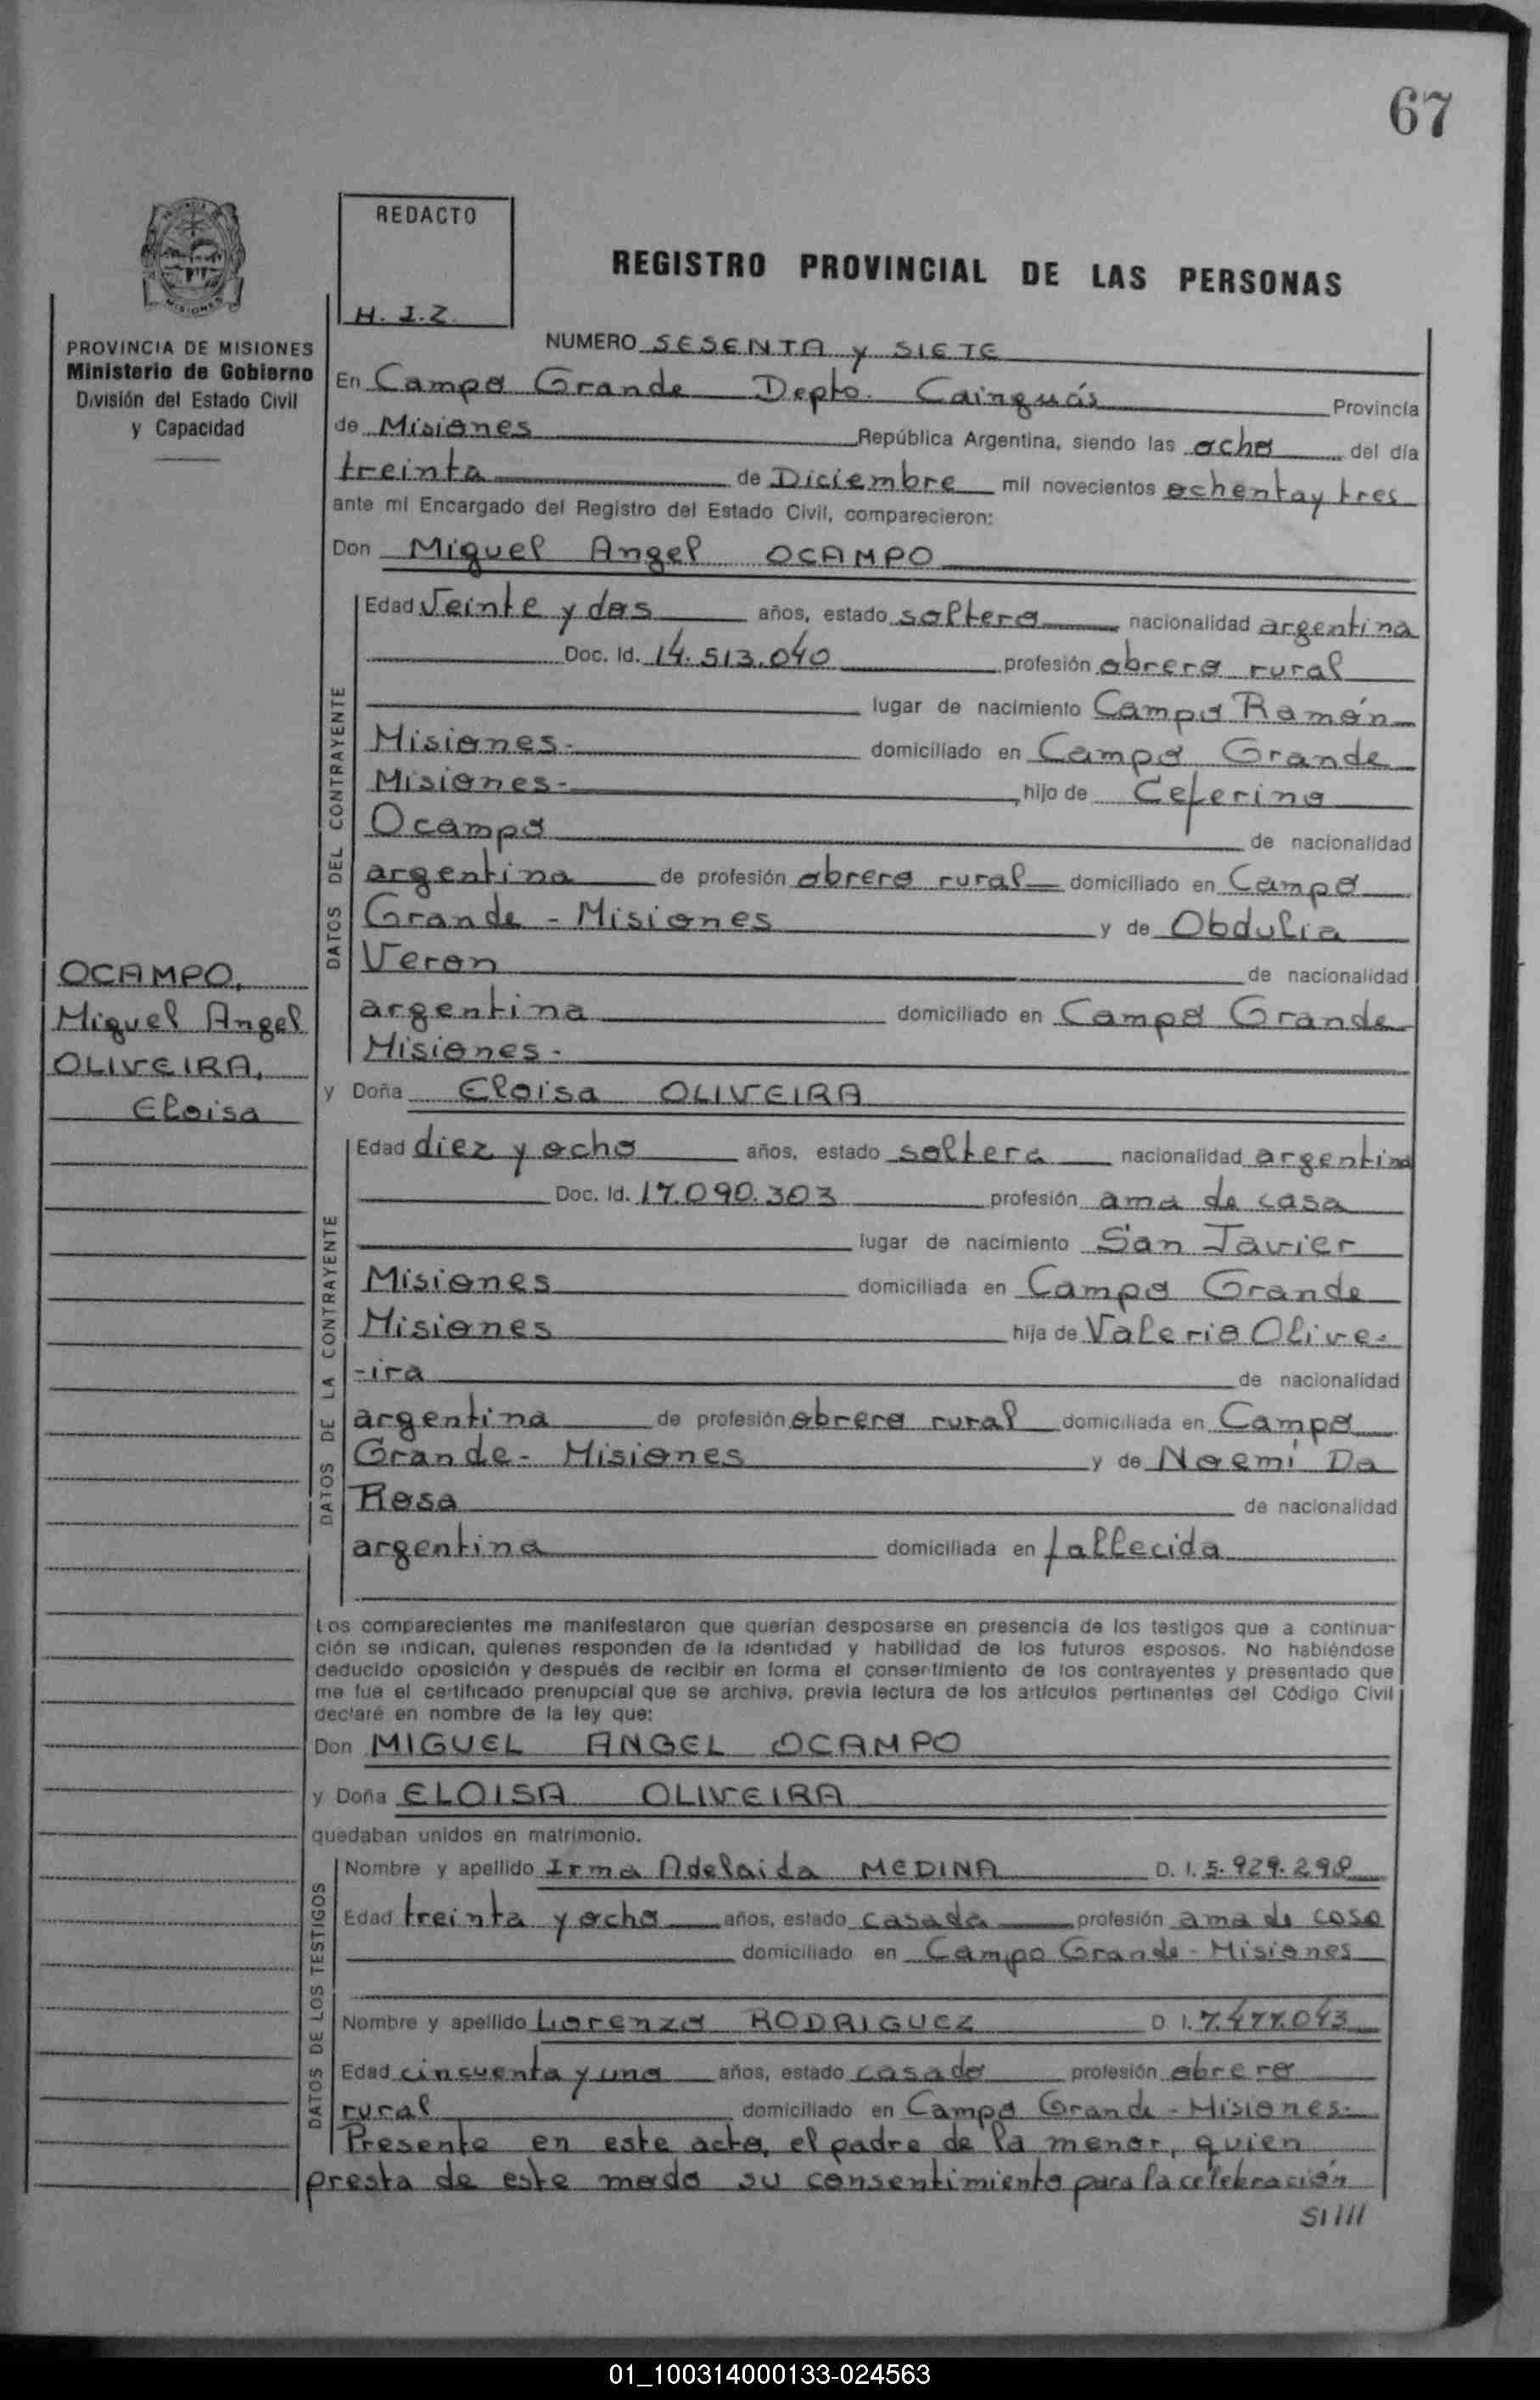 67
REDACTO
H. J. Z.
REGISTRO PROVINCIAL DE LAS PERSONAS
MISIONES
PROVINCIA DE MISIONES
Ministerio de Gobierno
División del Estado Civil
y Capacidad
OCAMPO,
Miguel Angel
OLIVEIRA,
Eloisa
NUMERO SESENTA y SIETE
En Campo Grande Depto. Cainguás Provincia
de Misiones República Argentina, siendo las ocho del día
treinta de Diciembre mil novecientos ochenta y tres
ante mi Encargado del Registro del Estado Civil, comparecieron:
Don Miguel Angel OCAMPO
DATOS DEL CONTRAYENTE
Edad Veinte y dos años, estado soltero nacionalidad argentina
Doc. Id. 14.513.040 profesión obrero rural
lugar de nacimiento Campo Ramón
Misiones- domiciliado en Campo Grande
Misiones- hijo de Ceferino
Ocampo de nacionalidad
argentina de profesión obrero rural domiciliado en Campo
Grande - Misiones y de Obdulia
Veron de nacionalidad
argentina domiciliado en Campo Grande
Misiones-
y Doña Eloisa OLIVEIRA
DATOS DE LA CONTRAYENTE
Edad diez y ocho años, estado soltera nacionalidad argentina
Doc. Id. 17.090.303 profesión ama de casa
lugar de nacimiento San Javier
Misiones domiciliada en Campo Grande
Misiones hija de Valerio Olive-
-ira de nacionalidad
argentina de profesión obrero rural domiciliada en Campo
Grande- Misiones y de Noemí Da
Rosa de nacionalidad
argentina domiciliada en fallecida
Los comparecientes me manifestaron que querían desposarse en presencia de los testigos que a continua-
ción se indican, quienes responden de la identidad y habilidad de los futuros esposos. No habiéndose
deducido oposición y después de recibir en forma el consentimiento de los contrayentes y presentado que
me fue el certificado prenupcial que se archiva, previa lectura de los artículos pertinentes del Código Civil
declaré en nombre de la ley que:
Don MIGUEL ANGEL OCAMPO
y Doña ELOISA OLIVEIRA
quedaban unidos en matrimonio.
DATOS DE LOS TESTIGOS
Nombre y apellido Irma Adelaida MEDINA D. I. 5.929.298
Edad treinta y ocho años, estado casada profesión ama de casa
domiciliado en Campo Grande - Misiones
Nombre y apellido Lorenzo RODRIGUEZ D. I. 7.477.043
Edad cincuenta y uno años, estado casado profesión obrero
rural domiciliado en Campo Grande - Misiones-
Presente en este acto, el padre de la menor, quien
presta de este modo su consentimiento para la celebración
SI////
01_100314000133-024563